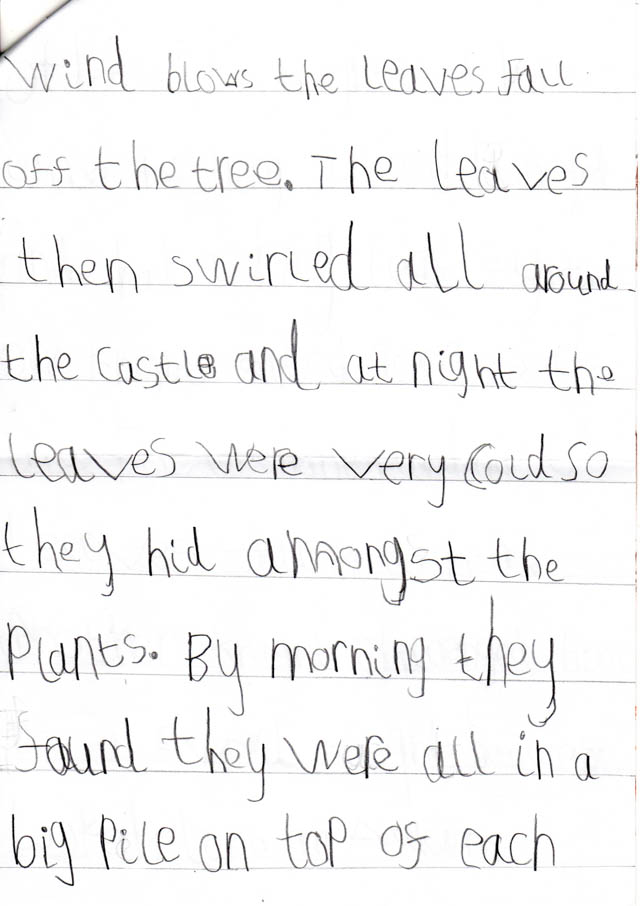 wind blows the leaves fall
off the tree. The leaves
then swirled all around
the castle and at night the
leaves were very cold so
they hid amongst the
plants. By morning they
found they were all in a
big pile on top of each